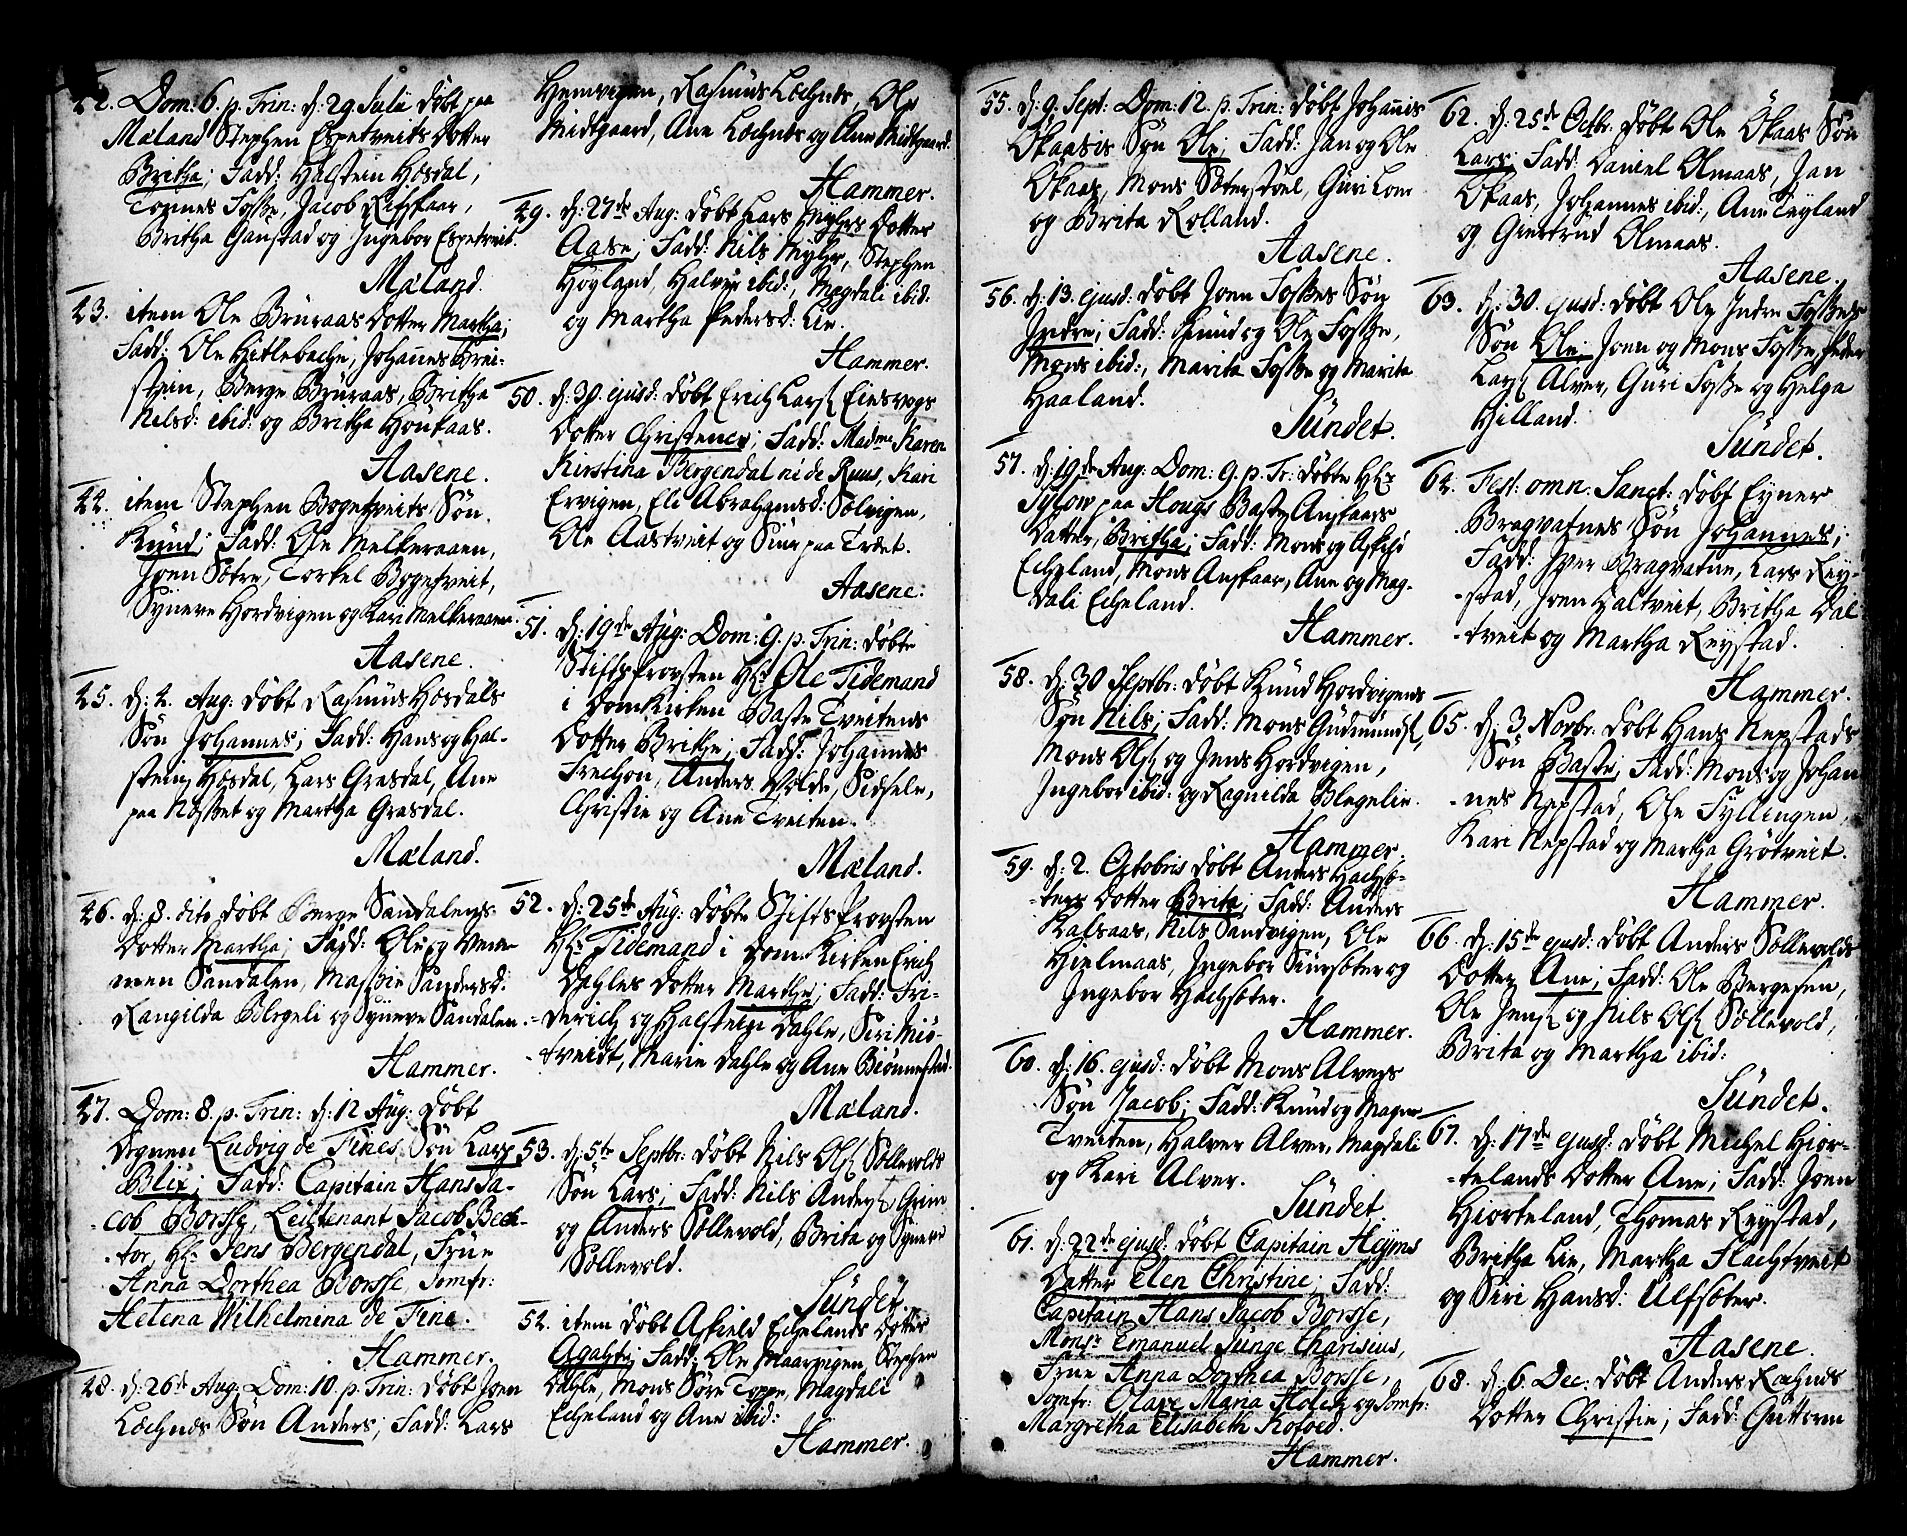 42. Dom: 6. p. Trin: d: 29 Julii döbt paa
Mæland Stephen Espetveits Dotter
Britha; Fadd: Halstein Hosdal,
Tormes Foſse, Jacob
Britha Ganstad og Ingebor Espetveit.
Mæland.
43. item Ole Brüraas Dotter Martha;
Fadd: Ole Hitlebache, Johannes Brei-
stein, Berge Brüraas, Britha
Nilsd: ibid: og Britha Höukaas.
Aasene.
44. item Stephen Bogetveits Sön
Knud; Fadd: Ole Melkeraaen,
Joen Sötre, Torkel Bogetveit,
Synneve Hordvigen og Kari Melkeraaen.
Aasene.
45. d: 4. Aug: döbt Rasmus Hosdals
Sön Johannes; Fadd: Hans og Hal-
stein Hosdal, Lars Grasdal, Ane
paa Næsset og Martha Grasdal.
Mæland.
46. d: 8. dito döbt Berge Sandalens
Dotter Martha; Fadd: Ole og
Sandalen, Sandersd:
Rangilda Blegeli og Syneve Sandalen.
Hammer.
47. Dom: 8. p. Trin: d: 12 Aug: döbt
Ludvig de Fines Sön Lars
Blix; Fadd: Capitain Hans Ja-
cob Borsse, Leutenant Jacob Bech-
tor, Hr: Jens Bergendal, Frue
Anna Dorthea Borsse, Jomfr:
Helena Wilhelmina de Fine.
Hammer.
48. d: 26de Aug: Dom: 10. p. Trin: döbt Joen
Lochnds Sön Anders; Fadd: Lars
Hemvigen, Rasmus Lochnds, Ole
Midtgaard, Ane Lochnds og Ane Midtgaard.
Hammer.
49. d: 27de Aug: döbt Lars Myhrs Dotter
Aase; Fadd: Nils Myhr, Stephen
Höyland, Halvor ibid:, Magdali ibid:
og Martha Pedersd: Lie.
Hammer.
50. d: 30 ejusd: döbt Erich Lars: Einevogs
Dotter Christence; Fadd: Madme Karen
Kirstina Bergendal ne de Ruus, Kari
Ervigen, Eli Abrahamsd: Sælvigen,
Ole Aastveit og Siur paa Trædet.
Aasene:
51. d: 19de Aug: Dom: 9. p. Trin: döbte
Stiftsprovsten Hr: Ole Tidemand
i Domkirken Baste Tveitens
Dotter Brithe; Fadd: Johannes
Frechon, Anders Volde, Sidsele,
Christie og Ane Tveiten.
Mæland.
52. d: 25de Aug: döbte StiftsProvsten
Hr: Tidemand i Dom-Kirken Erich
Dahles Dotter Marthe; Fadd: Fri-
derich og Halstein Dahle, Siri Miö-
tveidt, Marie Dahle og Ane Biönnestad.
Mæland.
53. d: 5te Septbr: döbt Nils Ols: Söllevolds
Sön Lars; Fadd: Nils Anders: Grim
og Anders Söllevold, Brita og Syneve
Söllevold.
Sündet.
54. item döbt Askield Echelands Dotter
Agathe; Fadd: Ole Maarvigen, Stephen
Dahle, Mons Söre Toppe, Magdali
Echeland og Ane ibid:
Hammer.
55. d: 9. Sept: Dom: 12. p. Trin: döbt Johannis
Okaasis Sön Ole; Fadd: Jan og Ole
Okaas, Mons Söterstöel, Güri Lone
og Brita Rolland.
Aasene.
56. d: 13. ejusd: döbt Joen Foſses Sön
Indre; Fadd: Knud og Ole Foſse,
Mons ibid:, Marita Foſse og Marita
Haaland.
Sündet.
57. d: 19de Aug: Dom: 9. p. Tr: döbte Hr:
Sylow paa Hougs Baste Anskaars
Datter, Britha; Fadd: Mons og Askild
Echeland, Mons Anskaar, Ane og Mag-
dali Echeland.
Hammer.
58. d: 30 Septbr: döbt Knud Hordvigens
Sön Nils; Fadd: Mons Gudmunds:,
Mons Ols: og Jens Hordvigen,
Ingebor ibid: og Ragnilda Blegelie.
Hammer.
59. d: 2. Octobris döbt Anders Hachsö-
ters Dotter Brita; Fadd: Anders
Kalsaas, Nils Sandvigen, Ole
Hielmaas, Ingebor Siursöter og
Ingebor Hachsöter.
Hammer.
60. d: 16. ejusd: döbt Mons Alvers
Sön Jacob; Fadd: Knud og Magne
Tveiten, Halver Alver, Magdali
og Kari Alver.
Sündet.
61. d: 22de ejusd: döbt Capitain Heyms
Datter Elen Christine; Fadd:
Capitain Hans Jacob Borsse,
Monsr: Emanuel Junge Charisius,
Frue Anna Dorthea Borsse,
Jomfr: Clare Maria Holch og Jomfr:
Margretha Elisabeth Kofoed.
Hammer.
62. d: 25de Octbr: döbt Ole Okaas Sön
Lars; Fadd: Daniel Olmaas, Jan
Okaas, Johannes ibid:, Ane Teyland
og Giertrud Olmaas.
Aasene.
63. d: 30. ejusd: döbt Ole Indre Foſses
Sön Ole; Joen og Mons Foſse, Peder
Lars: Alver, Güri Foſse og Helga
Hilland.
Sündet.
64. Fest: omn: Sanct: döbt Eyner
Bragvatnes Sön Johannes;
Fadd: Iver Bragvatne, Lars Rey-
stad, Joen Daltveit, Britha Dal-
tveit og Martha Reystad.
Hammer.
65. d: 3 Novbr: döbt Hans Nepstads
Sön Baste; Fadd: Mons og Johan-
nes Nepstad, Ole Fyllingen,
Kari Nepstad og Martha Grötveit.
Hammer.
66. d: 15de ejusd: döbt Anders Söllevolds
Dotter Ane; Fadd: Ole Bergesen,
Ole Jens: og Nils Ols: Söllevold,
Brita og Martha ibid:
Sündet.
67. d: 17de ejusd: döbt Michel Hior-
telands Dotter Ane; Fadd: Joen
Hiorteland, Thomas Reystad,
Britha Lie, Martha Flachtveit
og Siri Hansd: Ulfsöter.
Aasene.
68. d: 6. Dec: döbt Anders Rochnds
Dotter Christie; Fadd: Guttorm